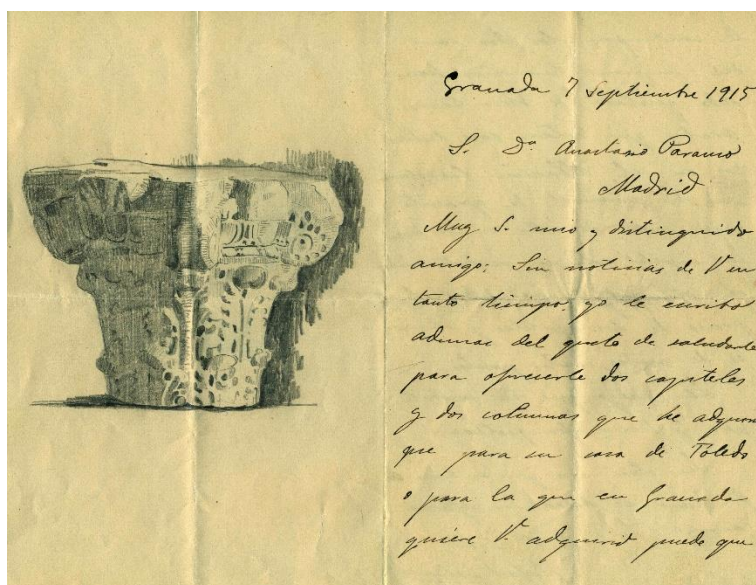 Granada 7 Septiembre 1915
S. Dn. Anastasio Paramo
Madrid
Muy S. mio y distinguido
amigo: Sin noticias de V en
tanto tiempo yo le escribo
ademas del gusto de saludarle
para ofrecerle dos capiteles
y dos columnas que he
que para su casa de Toledo
o para la que en Granada
quiere V. adquirir puede que